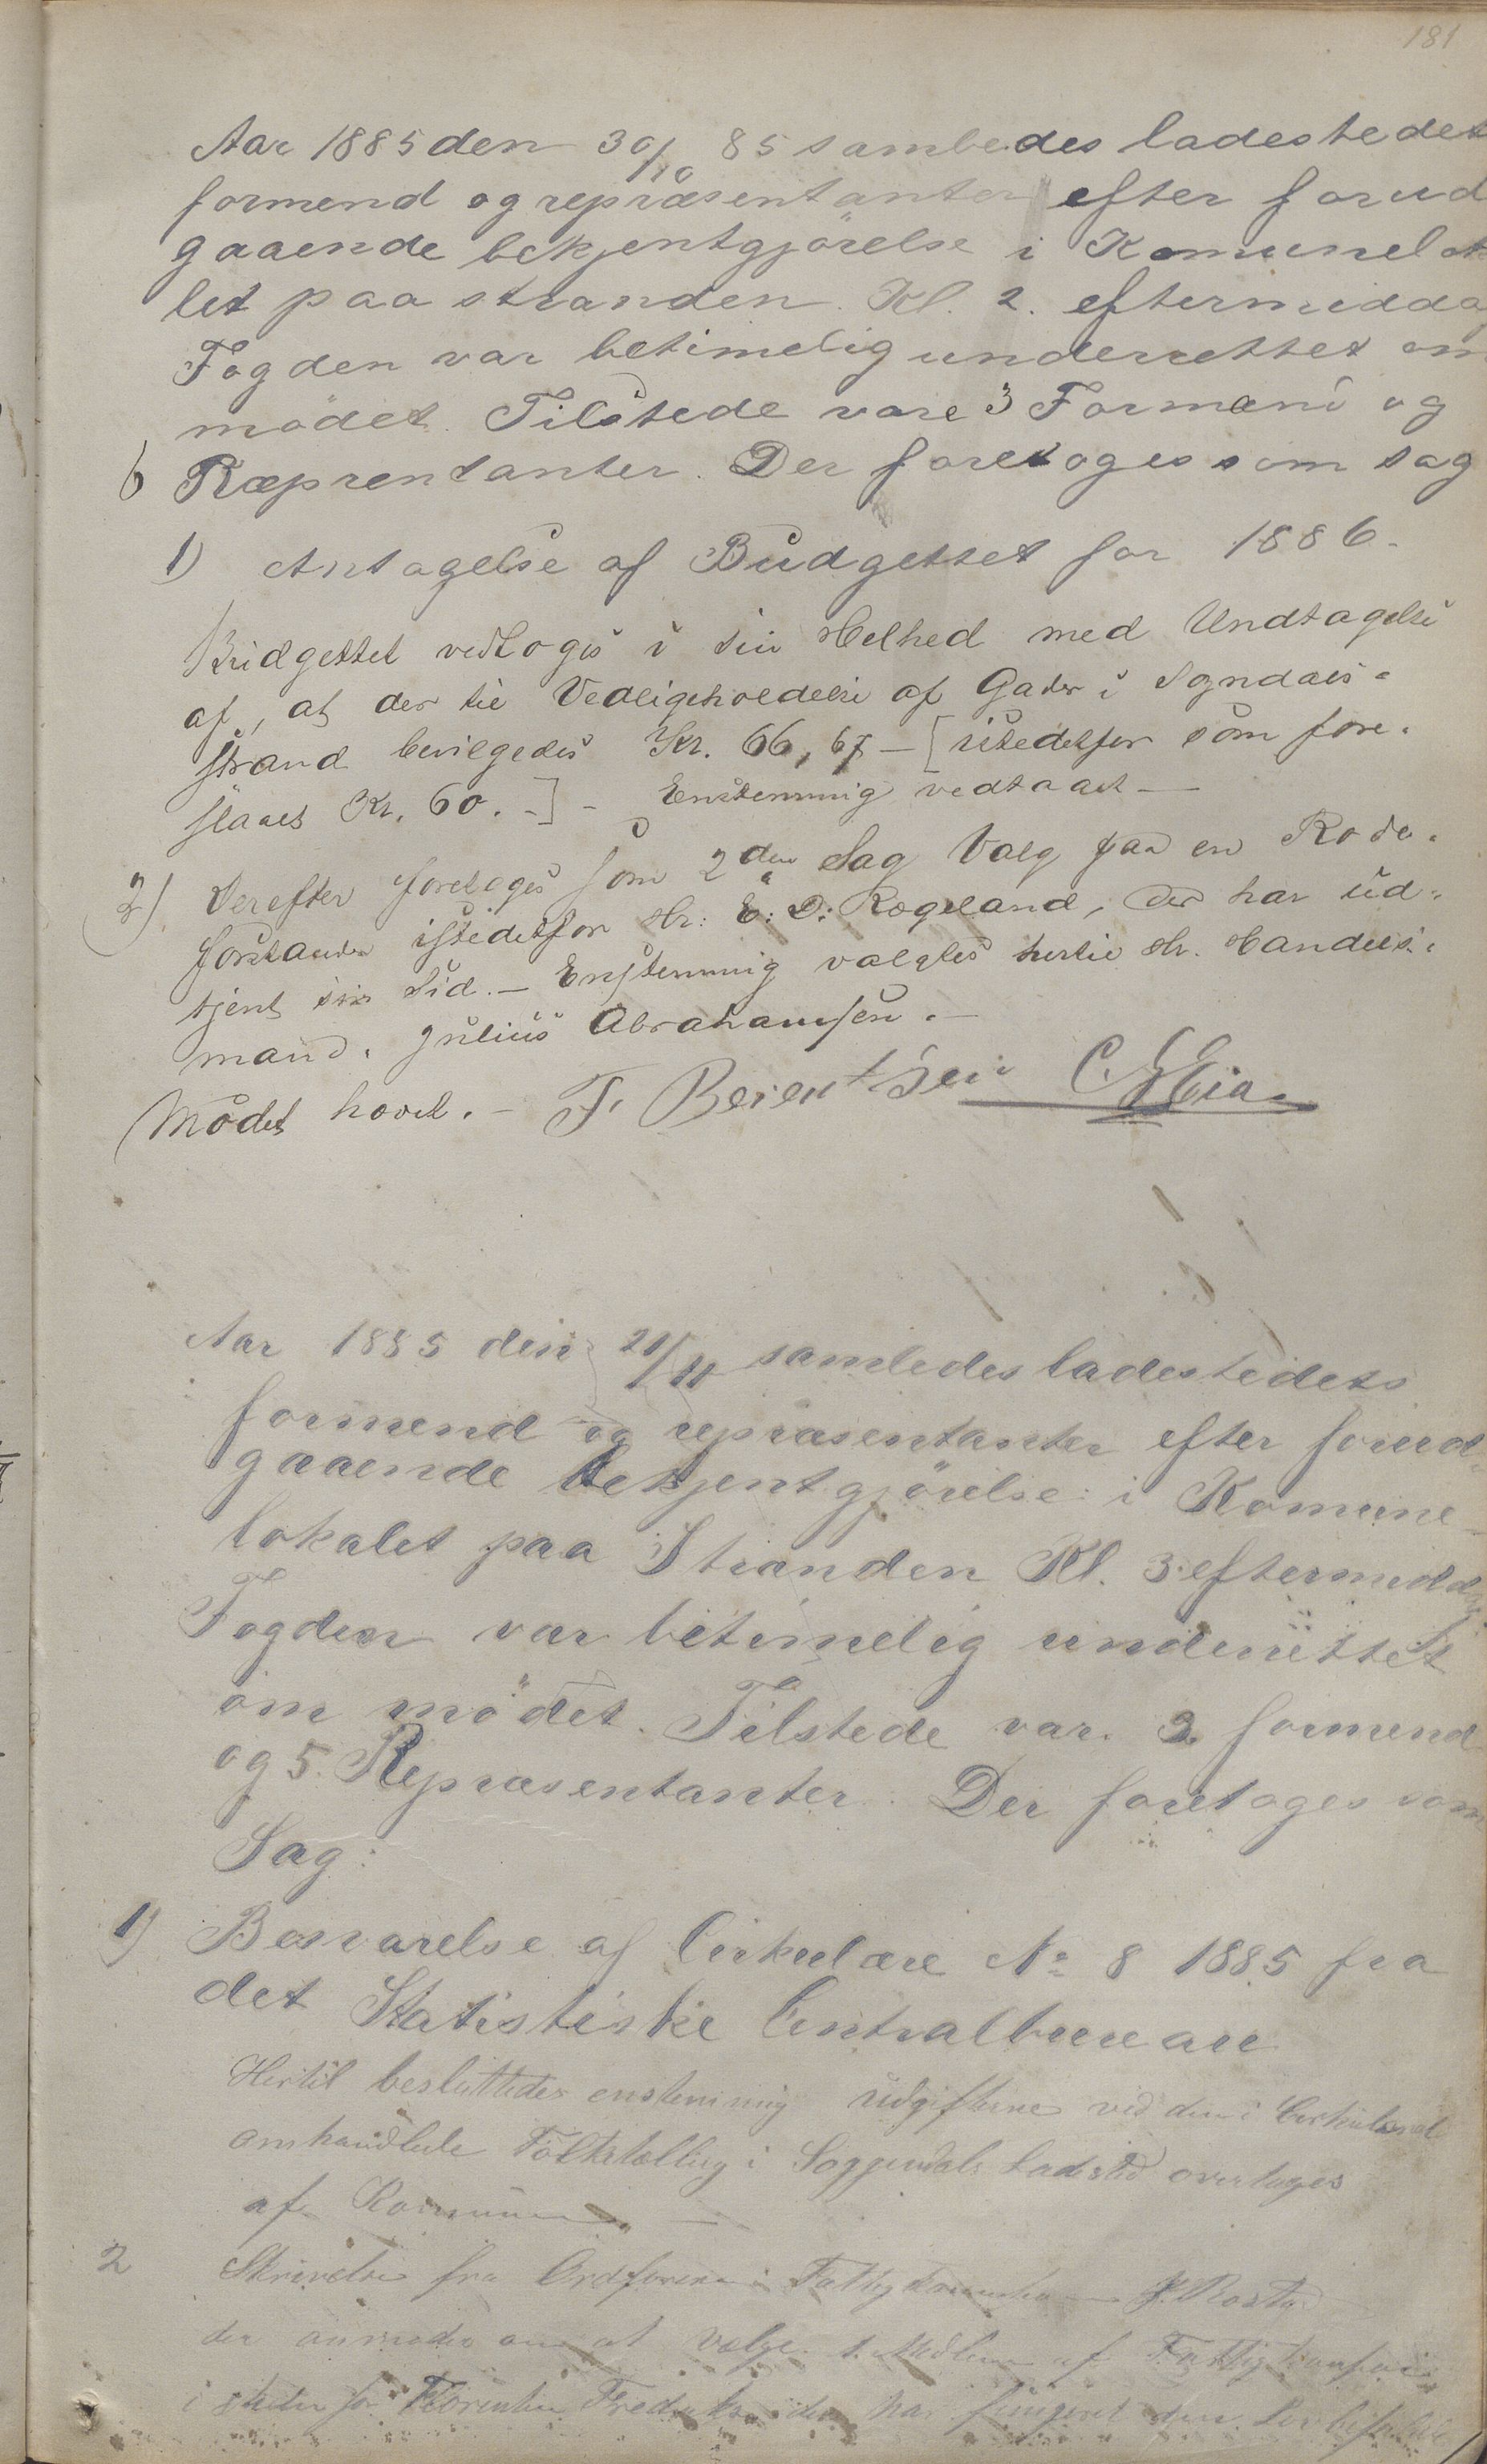 181
Aar 1885 den 30/10 85 samledes ladestedet
formend og repræsentanter efter forud
gaaende bekjentgjörelse i Komunelok
let paa stranden. Kl. 2. eftermiddag
Fogden var betimelig underrettet om
mödet. Tilstede vare 3 Formænd og
6 Ræprentanter. Der foretoges som sag
1) Antagelse af Budgettet for 1886.
Budgettet vedtoges i sin Helhed med Undtagelse
af, at der til Vedligeholdelse af Gader i Sogndals-
strand bevilgedes Kr. 66,67 – [istedetfor som fore-
slaaet Kr. 60. -] - Enstemmig vedtaget —
2) Derefter foretoges som 2den Sag Valg paa en Rode-
forstander istedetfor Hr: E: D: Rogeland, der har ud-
tjent sin Tid. – Enstemmig valgtes hertil Hr. Handels-
mand. Julius Abrahamsen. –
Mödet hævet. – F. Berentsen C. Eia
Aar 1885 den 20/11 samledes ladestedets
formend og repræsentanter efter forud-
gaaende bekjentgjörelse i Komune-
lokalet paa Stranden Kl. 3 eftermiddag
Fogden var betimelig underrettet
om mödet. Tilstede var. 2 formend
og 5. Repræsentanter. Der foretoges som
Sag:
1) Besvarelse af Cirkulære No 8 1885 fra
det Statistiske Centralbureau
Hertil besluttedes enstemmig udgifterne ved den i Cirkulæret
omhandlede Folketælling i Soggendals Ladested overtages
af Kommunen —
2 Skrivelse fra Ordføreren i Fattigkommissionen
der anmoder om at vælge 1 Medlem af
i stedet for Florentin Fredriksen der har fungeret